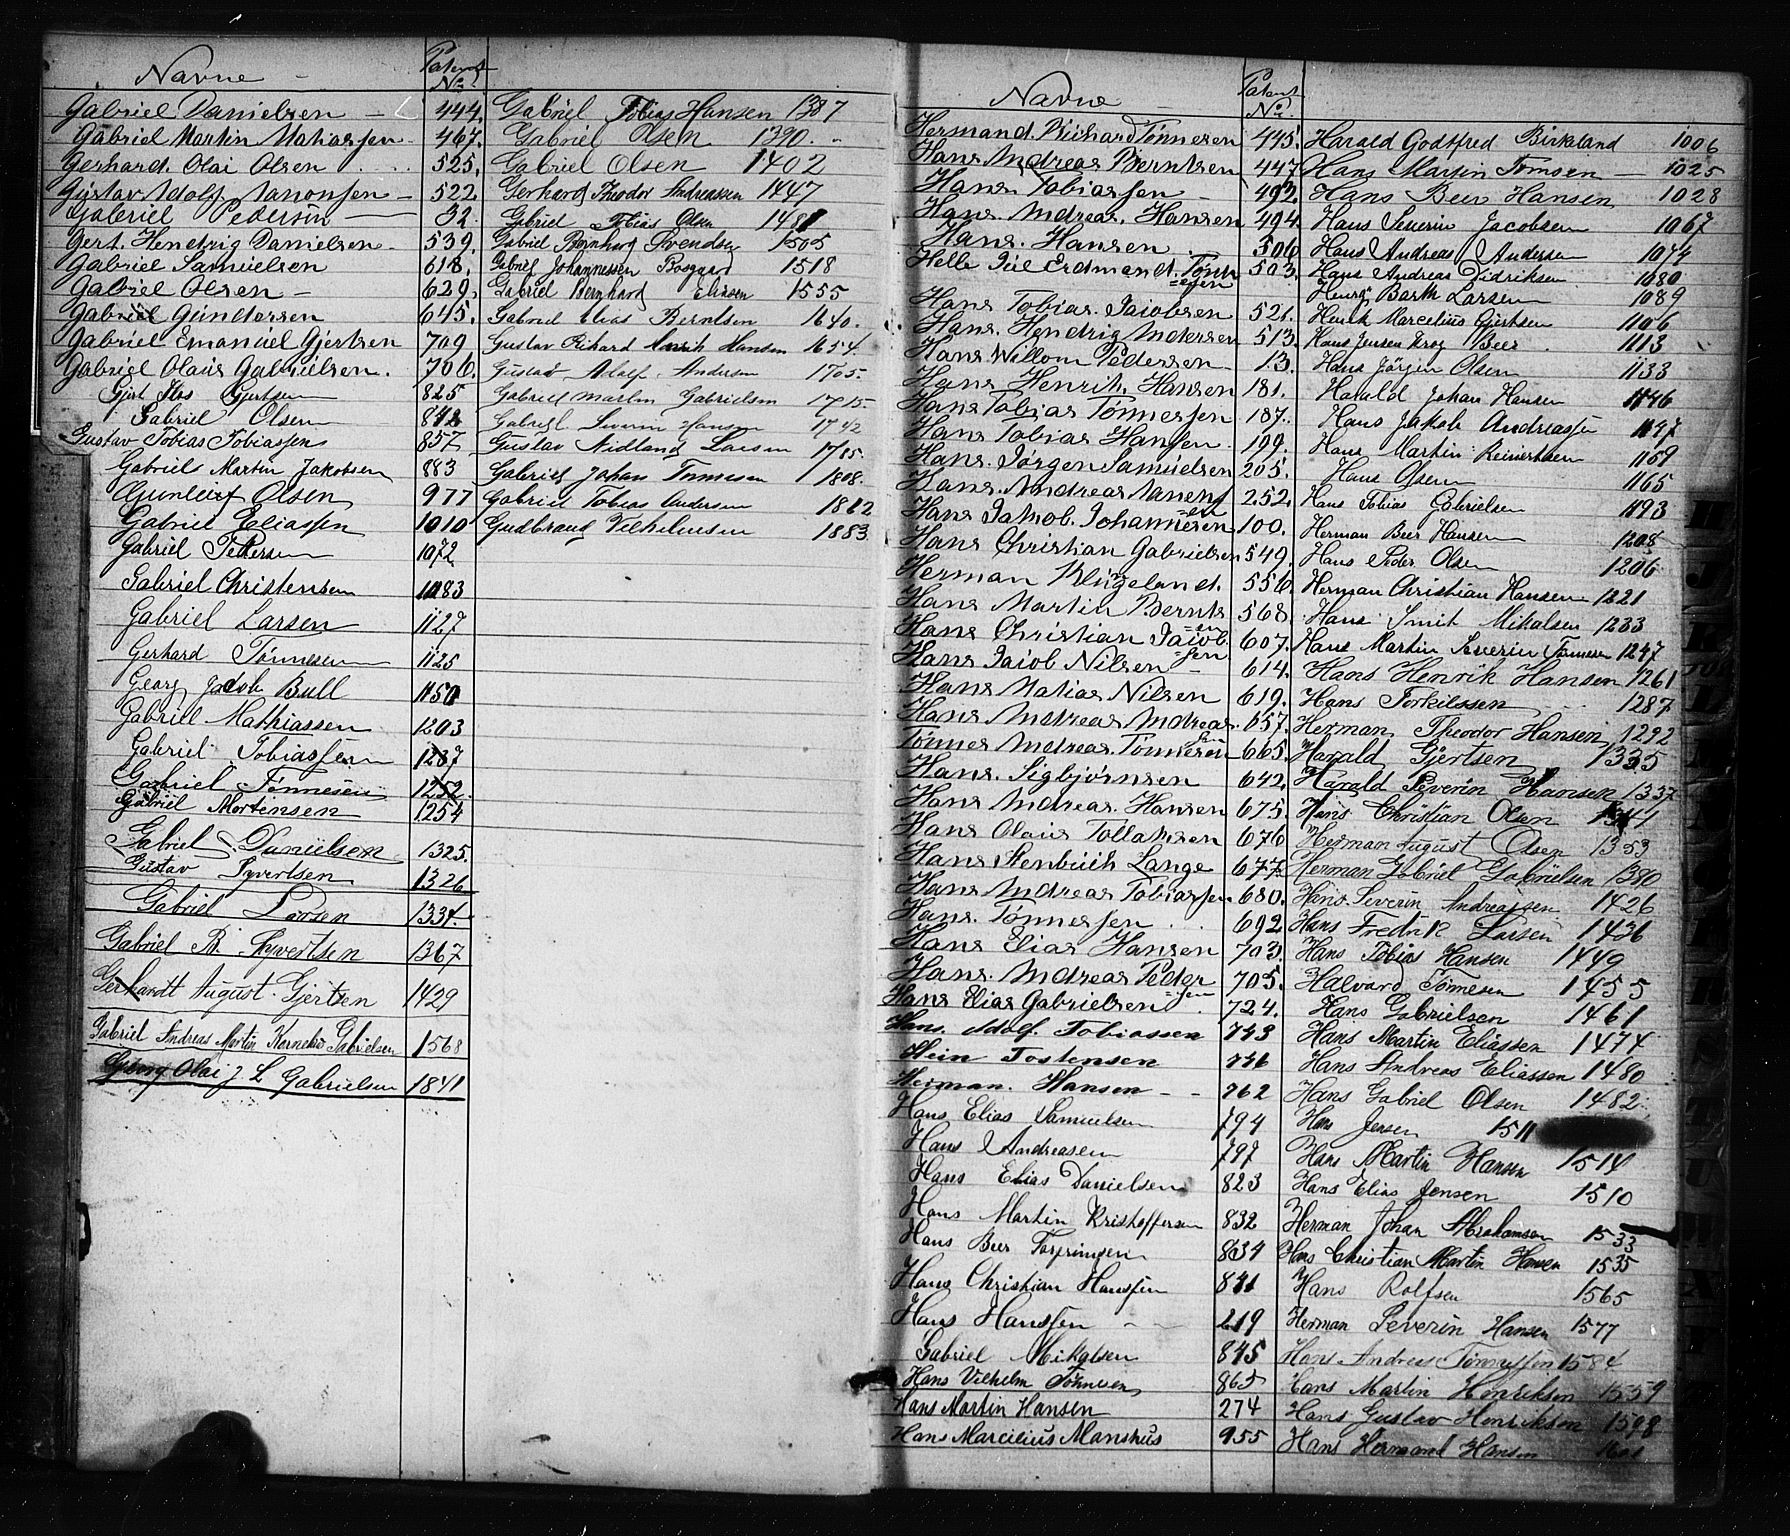 Navne
Patent No
Gabriel Danielsen 444.
Gabriel Martin Matiassen 467.
Gerhard Olai Olsen 525.
Gustav Adolf Aanonsen 522.
Gabriel Pedersen 32.
Gert. Hendrig Danielsen 539.
Gabriel Samuelsen 618.
Gabriel Olsen 629.
Gabriel Gundersen 645.
Gabriel Emanuel Gjertsen 709
Gabriel Olaus Gabrielsen. 706.
Gjert Gjertsen 825
Gabriel Olsen 842
Gustav Tobias Tobiassen 857
Gabriel Martin Jakobsen 883
Gunleif Olsen 977
Gabriel Eliassen 1010
Gabriel Pettersen 1072
Gabriel Christensen 1083
Gabriel Larsen 1127
Gerhard Tønnesen 1125
Georg Jacob Bull 1150
Gabriel Mathiassen 1203
Gabriel Tobiassen 1237
Gabriel Tønnesen 1252
Gabriel Mortensen 1254
Gabriel Danielsen 1325.
Gustav Syvertsen 1326
Gabriel Larsen 1334.
Gabriel B. Syvertsen 1367
Gerhardt August Gjertsen 1429
Gabriel Andreas Martin Kornelius Gabrielsen 1568
Georg Olai J L Gabrielsen 1841
Gabriel Tobias Hansen 1387
Gabriel Olsen 1390.
Gabriel Olsen 1402
Gerhard Theodor Andreassen 1447
Gabriel Tobias Olsen 1481
Gabriel Bernhard Svendsen 1505
Gabriel Johannessen Bosgaard 1518
Gabriel Bernhard Eliasen 1555
Gabriel Elias Berntsen 1640.
Gustav Rikard Henrik Hansen 1654.
Gustav Adolf Andersen 1705.
Gabriel Martin Gabrielsen 1715.
Gabriel Severin Hansen 1742
Gustav Nidland Larsen 1785.
Gabriel Johan Tønnesen 1808.
Gabriel Tobias Andersen 1812
Gudbrand Vilhelmsen 1883
Navne
Patent No
Hermand. Richard Tønnesen 445.
Hans Andreas Berntsen 447
Hans. Tobiassen 492.
Hans. Andreas. Hansen 494.
Hans. Hansen 506
Helle Juel Erdmand. Tønn
=esen 503.
Hans Tobias Jacobsen 521.
Hans. Hendrig Andersen 513.
Hans Willom Pedersen 13.
Hans Henrik Hansen 181.
Hans Tobias Tønnessen 187.
Hans Tobias Hansen. 199.
Hans. Jørgen Samuelsen 205.
Hans. Andreas Aanens
=en 252.
Hans Jakob. Johannesen 100.
Hans Christian Gabrielsen 549.
Herman Kligeland. 556.
Hans Martin Bernts
=en 568.
Hans Christian Jacob
=sen 607.
Hans Jacob Nilsen 614.
Hans Matias Nilsen 619.
Hans Andreas Andreas
sen 657.
Tønnes Andreas. Tønnesen 665.
Hans. Sigbjørnsen 642.
Hans Andreas. Hansen 675.
Hans Olais Tollaksen 676
Hans Stenbuch Lange 677
Hans Andreas Tobiassen 680.
Hans. Tønnessen 692
Hans Elias Hansen 703.
Hans. Andreas Peter
=sen 705.
Hans Elias Gabrielsen 724.
Hans. Adolf Tobiassen 743
Hein Tostensen 736
Herman. Hansen 762
Hans Elias Samuelsen 794
Hans Andreasen 797
Hans Elias Danielsen 823
Hans Martin Kristoffersen 832
Hans Beer Torjersen 834
Hans Christian Hanssen 841
Hans Hanssen 219
Gabriel Mikalsen 845
Hans Vilhelm Tønnesen 865
Hans Martin Hansen 274
Hans Marcilius Manshus 955
Harald Godtfred Birkeland 1006
Hans Martin Tomsen 1025
Hans Beer Hansen 1028
Hans Severin Jacobsen 1067
Hans Andreas Andersen 1074
Hans Andreas Didriksen 1080
Henrig Barth Larsen 1089
Henrik Marcelius Gjertsen 1106
Hans Jensen Krog Beer 1113
Hans Jørgen Olsen 1133
Harald Johan Hansen 1146
Hans Jakob Andreassen 1147
Hans Martin Reinertsen 1159
Hans Olsen 1165
Hans Tobias Gabrielsen 1193
Herman Beer Hansen 1208
Hans Peder Olsen 1206
Herman Christian Hansen 1221
Hans Smit Mikalsen 1233
Hans Martin Severin Tønnesen 1247
Hans Henrik Hansen 1261
Hans Torkilssen 1287
Herman Theodor Hansen 1292
Harald Gjertsen 1335
Harald Severin Hansen 1337
Hans Christian Olsen 1344
Herman August Olsen 1353
Herman Gabriel Gabrielsen 1380
Hans Severin Andreassen 1426
Hans Fredrik Larsen 1436
Hans Tobias Hansen 1449
Halvard Tønnesen 1455
Hans Gabrielsen 1461
Hans Martin Eliassen 1474
Hans Andreas Eliassen 1480
Hans Gabriel Olsen 1482
Hans Jensen 1511
Hans Martin Hansen 1514
Hans Elias Jensen 1510
Herman Johan Abrahamsen 1533
Hans Christian Martin Hansen 1535
Hans Rolfsen 1565
Herman Severin Hansen 1577
Hans Andreas Tønnessen 1584
Hans Martin Henriksen 1559
Hans Gustav Henriksen 1598
Hans Hermand Hansen